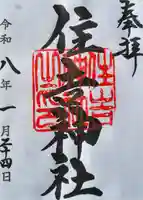 奉拝
住吉神社
住吉神社
令和八年一月二十四日